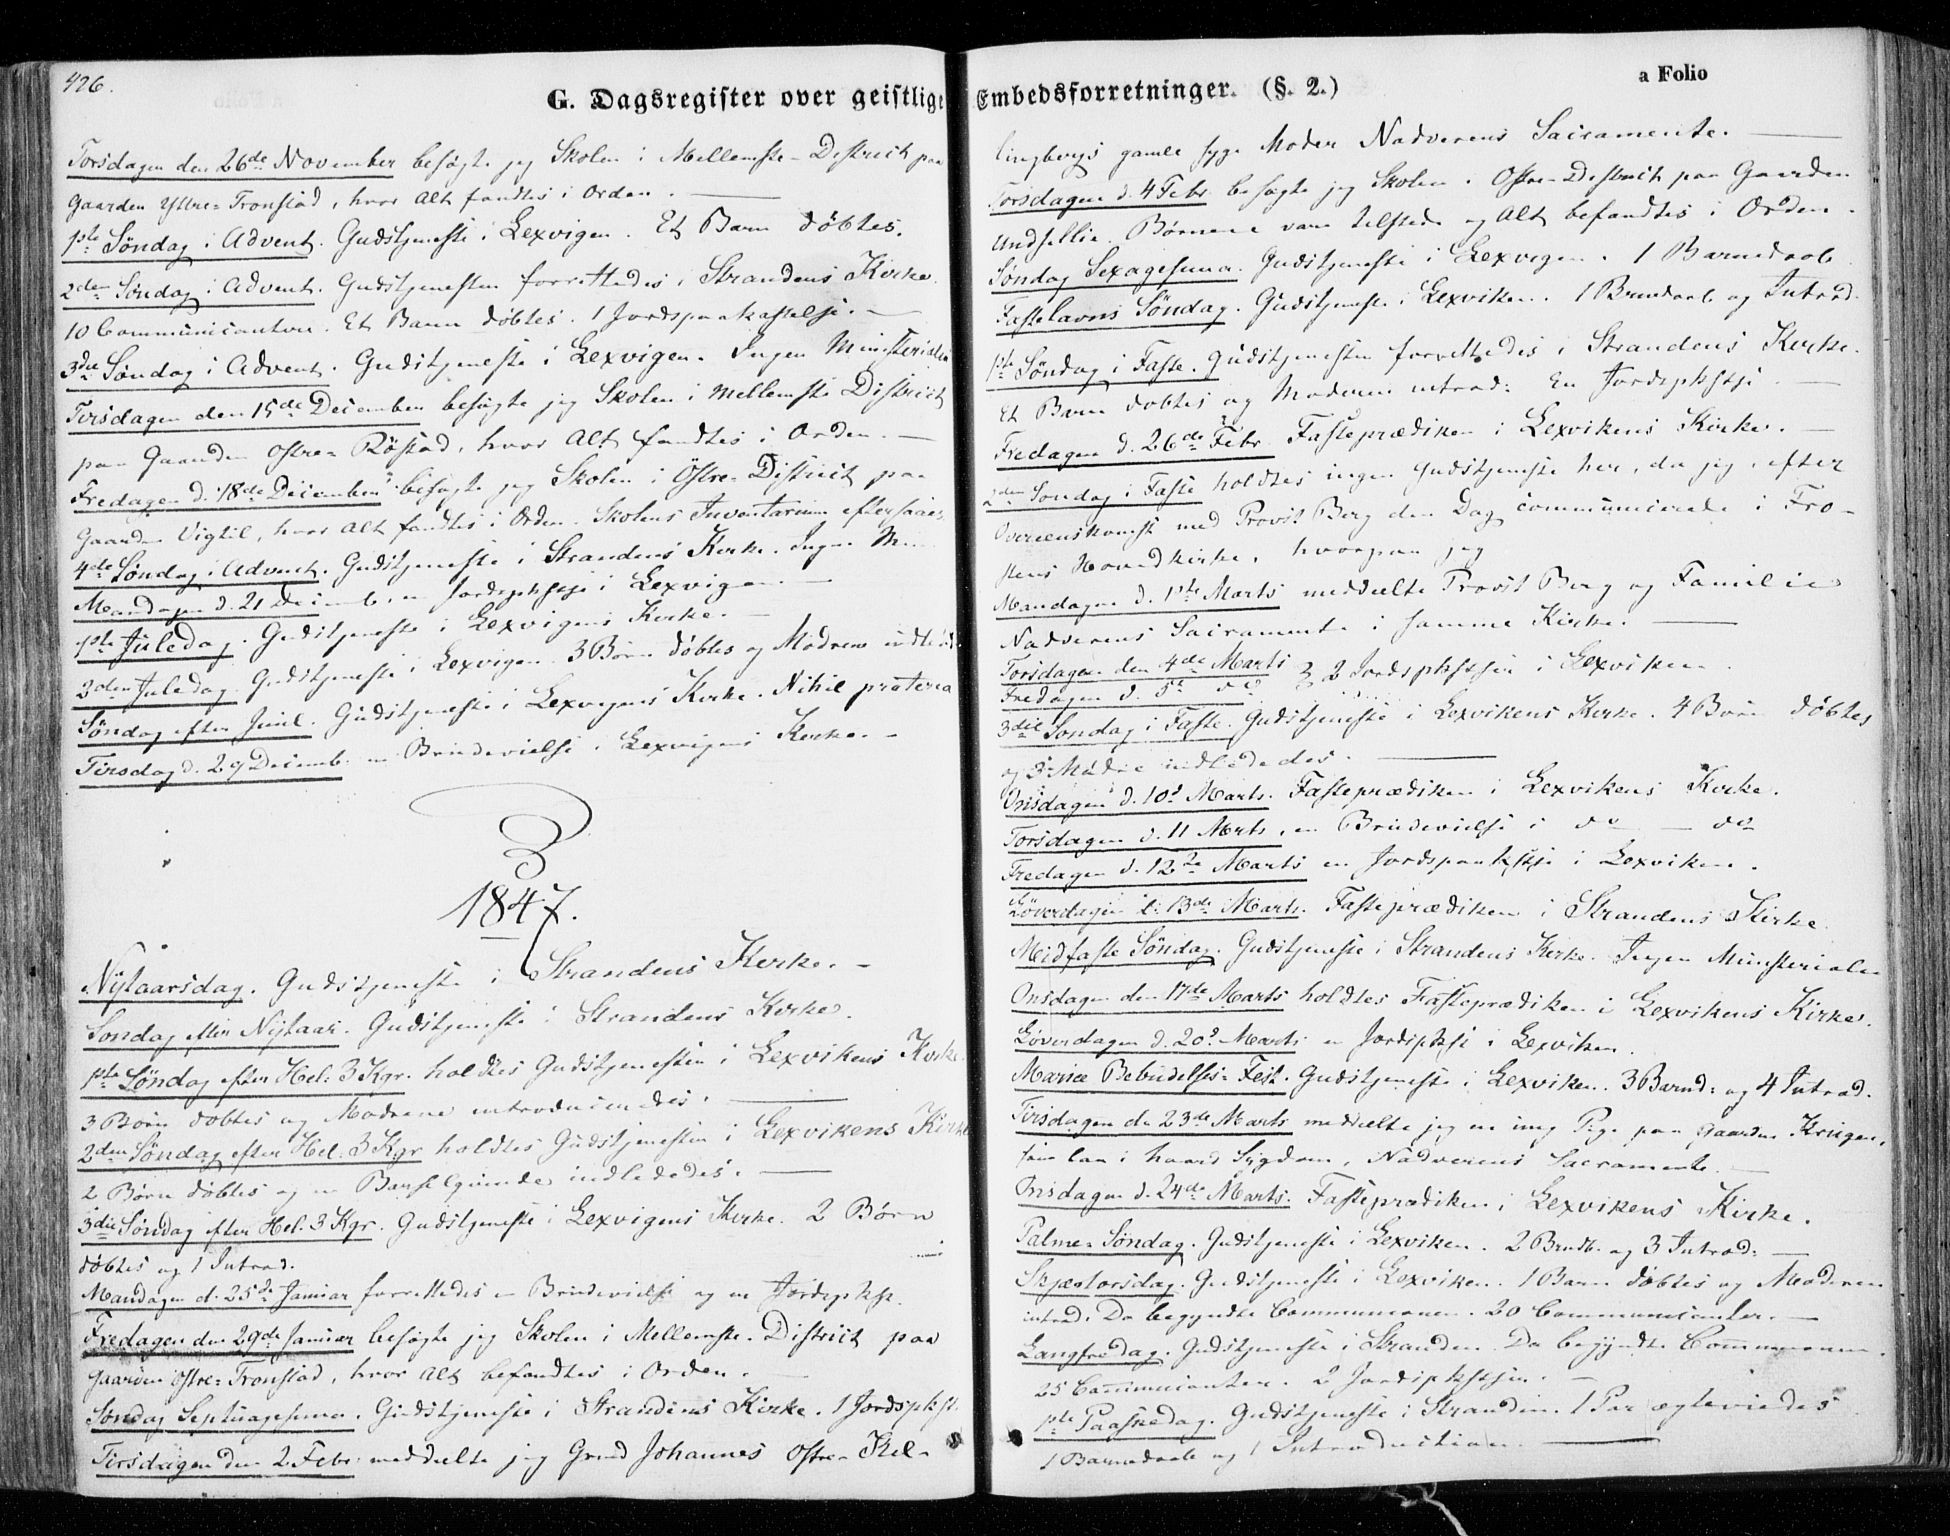 426.
G. Dagsregister over geistlige
Torsdagen den 26de November besøgte jeg Skolen i Mellemste-District paa
Gaarden Yttre-Tronstad, hvor Alt fandtes i Orden.
1ste Söndag i Advent. Gudstjeneste i Lexvigen. Et Barn döbtes.
2den Söndag i Advent. Gudstjenesten forrettedes i Strandens Kirke.
10 Communicantere. Et Barn döbtes. 1 Jordspaakastelse.
3die Söndag i Advent. Gudstjeneste i Lexvigen. Ingen Ministerialia
Tirsdagen den 15de December besøgte jeg Skolen i Mellemste District
paa Gaarden Østre-Röstad, hvor Alt fandtes i Orden.
Fredagen d. 18de December besøgte jeg Skolen i Östre-District paa
Gaarden Vigtil, hvor Alt fandtes i Orden. Skolens Inventarium eftersaaes.
4de Söndag i Advent. Gudstjeneste i Strandens Kirke. Ingen Min
Mandagen d. 21 Decemb. en Jordspkstse i Lexvigen.
1ste Juledag. Gudstjeneste i Lexvigens Kirke.
2den Juledag. Gudstjeneste i Lexvigen. 3 Börn döbtes og Mödrene indled.
Söndag efter Juul. Gudstjeneste i Lexvigens Kirke. Nihil præterea
Tirsdag d. 29 Decemb. en Brudevielse i Lexvigens Kirke.
1847.
Nytaarsdag. Gudstjeneste i Strandens Kirke.
Söndag efter Nytaar. Gudstjeneste i Strandens Kirke.
1ste Söndag efter Hel: 3 Kgr. holdtes Gudstjenesten i Lexvikens Kirke
3 Börn döbtes og Mödrene introduceredes.
2den Söndag efter Hel: 3 Kgr holdtes Gudstjenesten i Lexvikens Kirke
2 Börn döbtes og en Barselqvinde indlededes.
3die Söndag efter Hel. 3 Kgr. Gudstjeneste i Lexvigens Kirke. 2 Börn
döbtes og 1 Introd.
Mandagen d. 25de Januar forrettedes en Brudevielse og en Jordspkst.
Fredagen den 29de Januar besøgte jeg Skolen i Mellemste-District paa
Gaarden Østre-Tronstad, hvor Alt befandtes i Orden.
Söndag Septuagesima. Gudstjeneste i Strandens Kirke. 1 Jordspkst.
Tirsdagen den 2 Febr. meddeelte jeg Gmd Johannes Østre-Kol-
Embedsforretninger. (§. 2.)
a Folio
lingbergs gamle syge Moder Nadverens Sacramente.
Torsdagen d. 4 Febr besøgte jeg Skolen i Østre-District paa Gaarden
Undsetlie. Børnene vare tilstede og Alt befandtes i Orden.
Söndag Sexagesima. Gudstjeneste i Lexvigen. 1 Barnedaab
Fastelavns Söndag. Gudstjeneste i Lexviken. 1 Brnedaab og Introd.
1ste Söndag i Faste. Gudstjenesten forrettedes i Strandens Kirke.
Et Barn döbtes og Moderen introd: En Jordspkstse
Fredagen d. 26de Febr Fasteprædiken i Lexvikens Kirke.
2den Söndag i Faste holdtes ingen Gudstjeneste her, da jeg, efter
Overeenskomst med Provst Berg den Dag communicerede i Fro-
stens Hovedkirke, hvorpaa jeg
Mandagen d. 1ste Marts meddeelte Provst Berg og Familie
Nadverens Sacramente i samme Kirke.
Torsdagen den 4de Marts
Fredagen d. 5te do } 2 Jordspkstser i Lexviken.
3die Söndag i Faste. Gudstjeneste i Lexvikens Kirke. 4 Börn döbtes
og 3 Mödre indlededes.
Onsdagen d. 10de Marts. Fasteprædiken i Lexvikens Kirke.
Torsdagen d. 11 Marts, en Brudevielse i do — do
Fredagen d. 12te Marts en Jordspaakstse i Lexviken.
Löverdagen d. 13de Marts. Fasteprædiken i Strandens Kirke.
Midfaste Söndag. Gudstjeneste i Strandens Kirke. Ingen Ministerialia
Onsdagen den 17de Marts holdtes Fasteprædiken i Lexvikens Kirke.
Löverdagen d. 20de Marts en Jordspkse i Lexviken.
Mariæ Bebudelses-Fest. Gudstjeneste i Lexviken. 3 Barnd: og 4 Introd.
Tirsdagen den 23de Marts meddeelte jeg en ung Pige paa Gaarden
som laae i haard Sygdom, Nadverens Sacramente.
Onsdagen d. 24de Marts. Fasteprædiken i Lexvikens Kirke.
Palme-Söndag. Gudstjeneste i Lexviken. 2 Brndb. og 3 Introd:
Skjærtorsdag. Gudstjeneste i Lexviken. 1 Barn döbtes og Moderen
introd. Da begyndte Communionen. 20 Communicanter.
Langfredag. Gudstjeneste i Stranden. Da begyndte Communionen.
25 Communicanter. 2 Jordspkstser.
1ste Paaskedag. Gudstjeneste i Stranden. 1 Par ægteviedes
1 Barnedaab og 1 Introduction